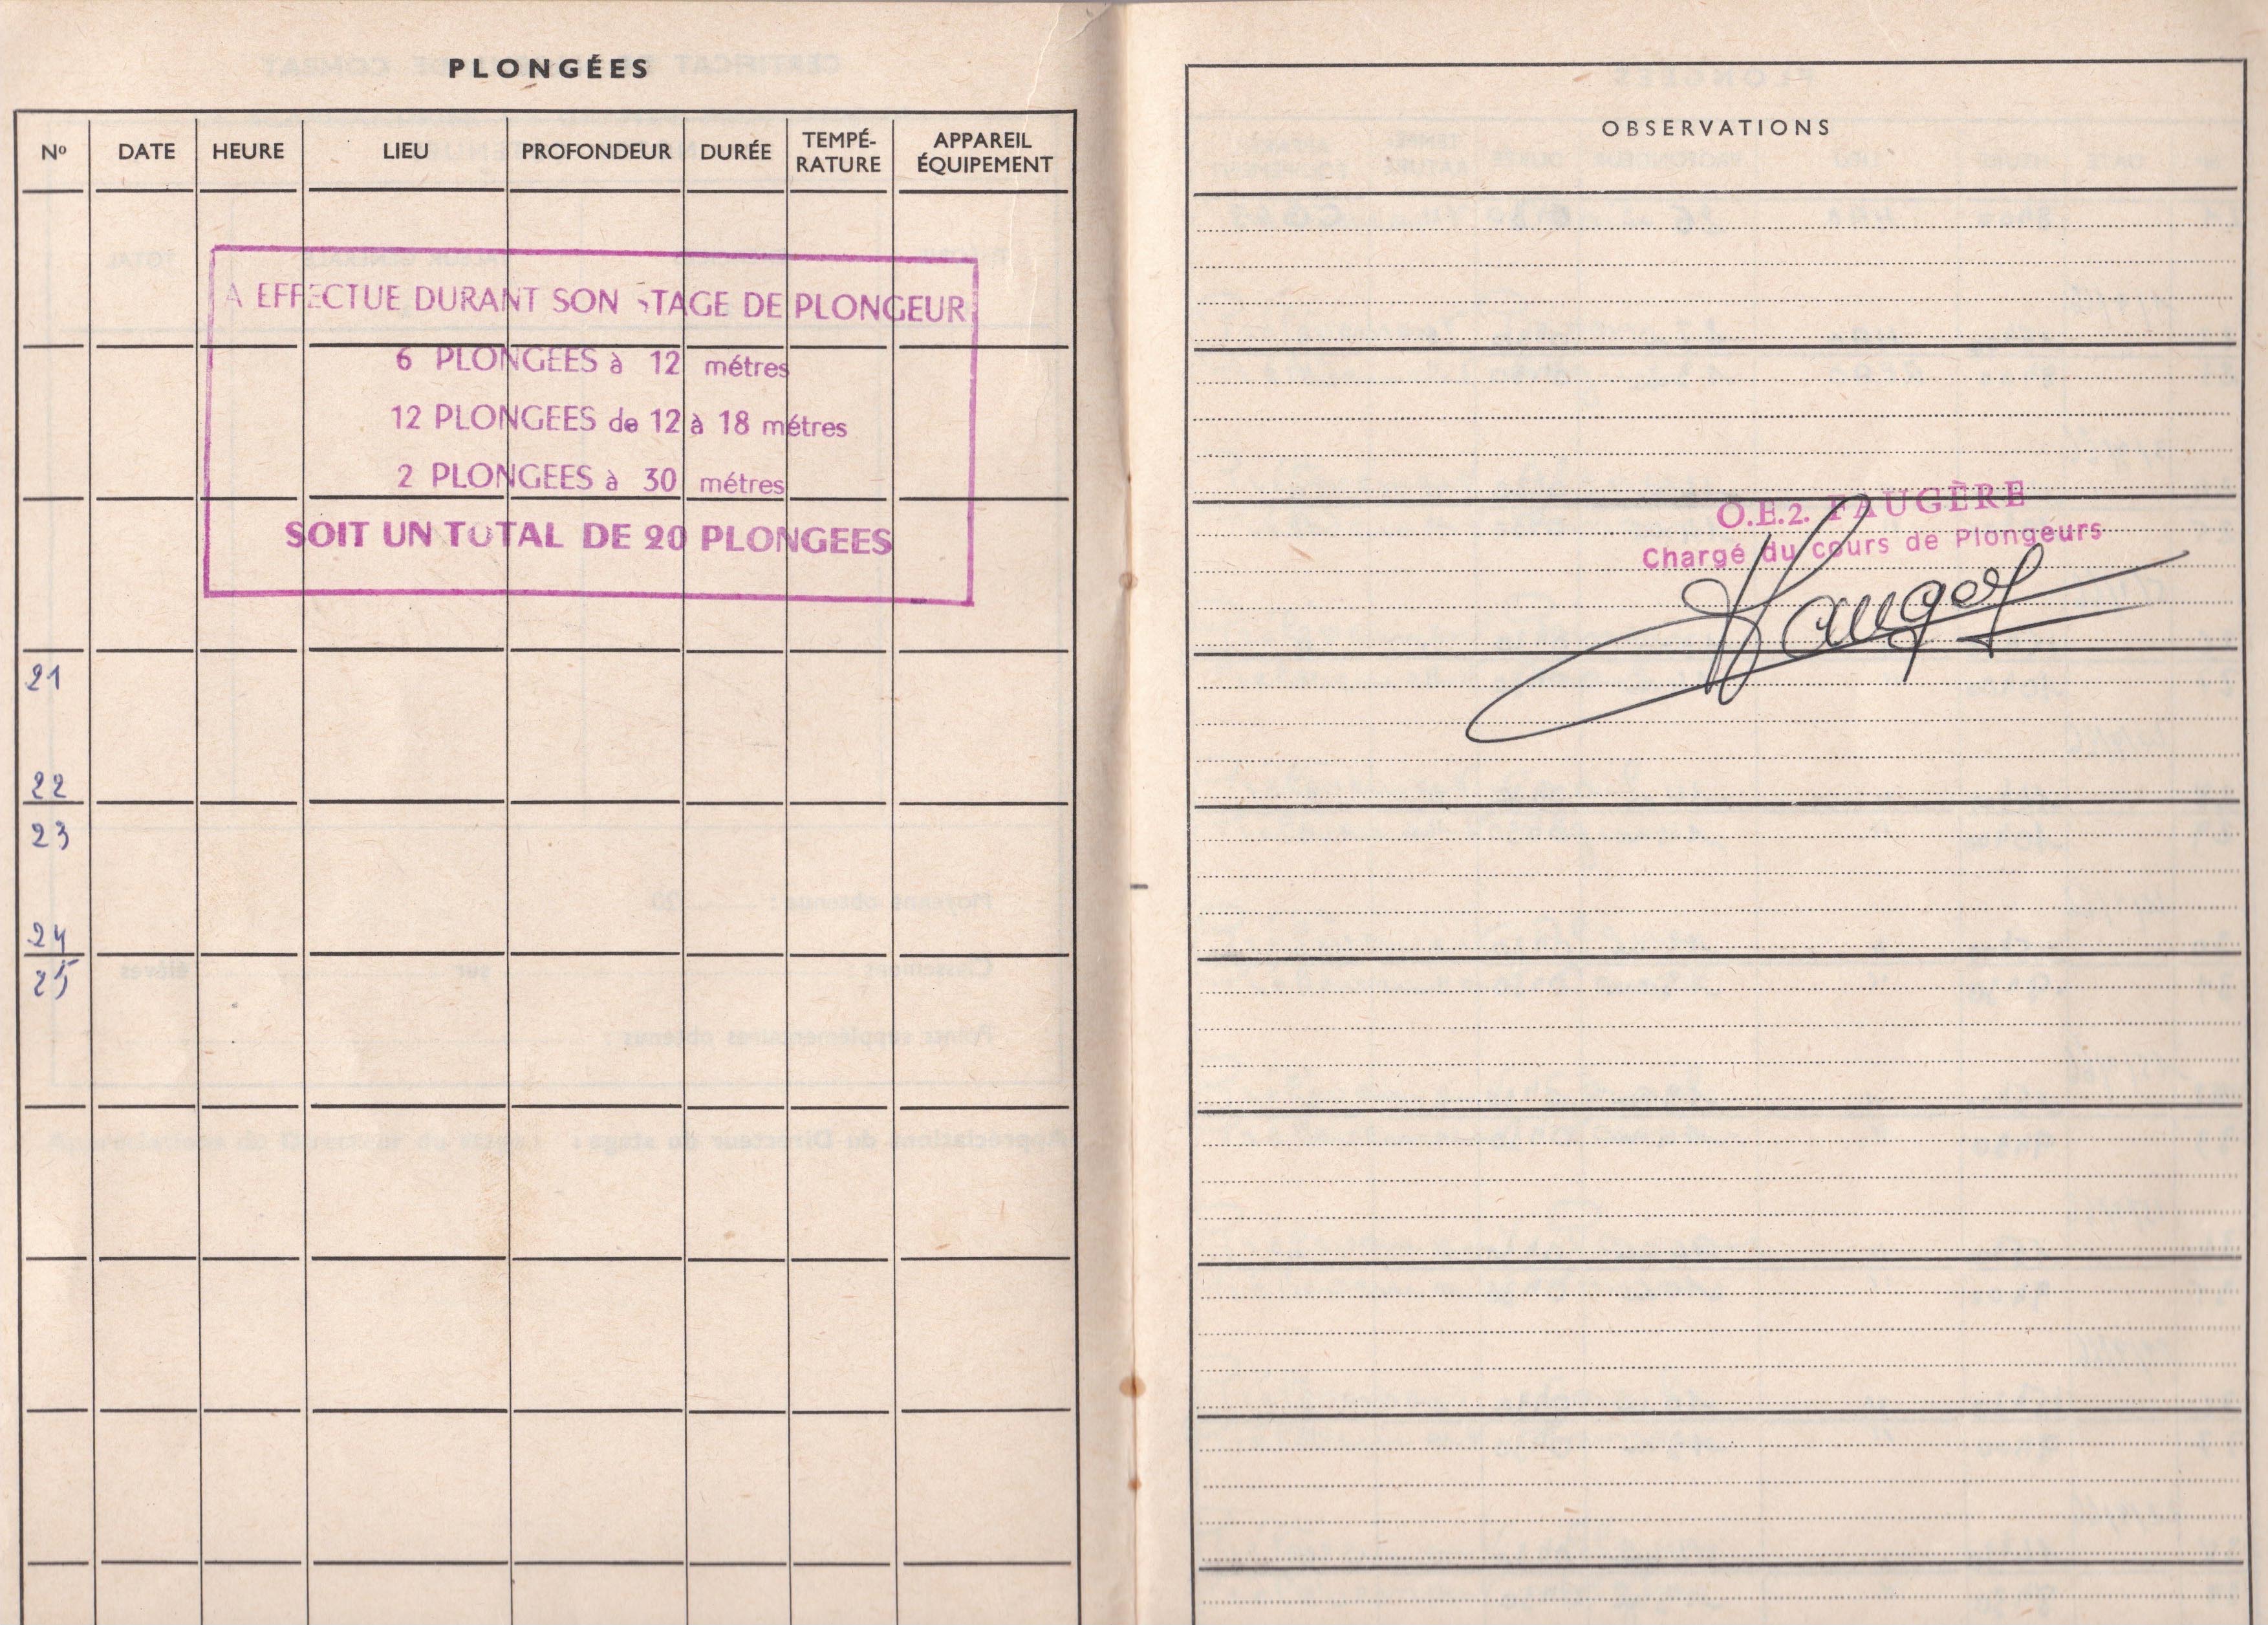 PLONGÉES
Nº DATE HEURE LIEU PROFONDEUR DURÉE TEMPÉ-RATURE APPAREIL ÉQUIPEMENT
A EFFECTUE DURANT SON STAGE DE PLONGEUR
6 PLONGEES à 12 métres
12 PLONGEES de 12 à 18 métres
2 PLONGEES à 30 métres
SOIT UN TOTAL DE 20 PLONGEES
21
22
23
24
25
OBSERVATIONS
O.E.2. FAUGÈRE
Chargé du cours de Plongeurs